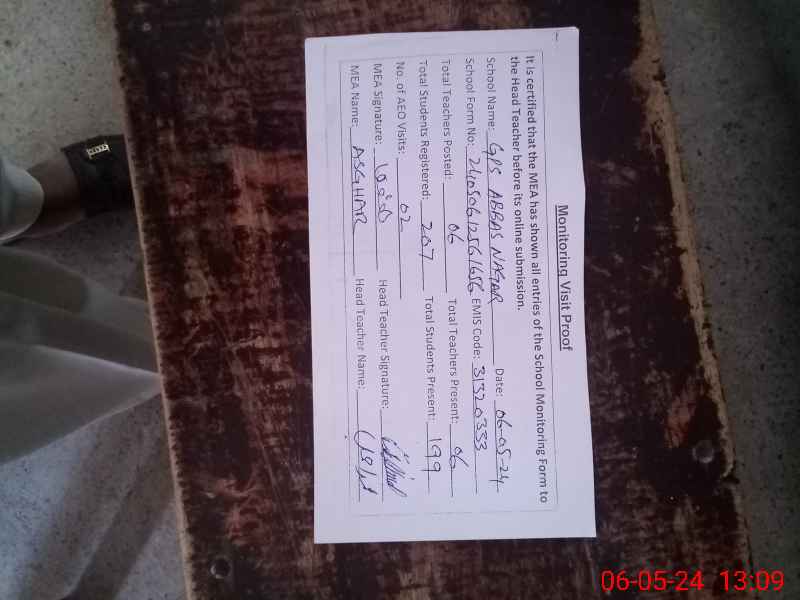 Monitoring Visit Proof
It is certified that the MEA has shown all entries of the School Monitoring Form to
the Head Teacher before its online submission.
School Name: GPS ABBAS NAGAR Date: 06-05-24
School Form No: 24050612561656 EMIS Code: 31320333
Total Teachers Posted: 06 Total Teachers Present: 06
Total Students Registered: 207 Total Students Present: 199
No. of AEO Visits: 02
MEA Signature: Head Teacher Signature:
MEA Name: ASGHAR Head Teacher Name:
06-05-24 13:09